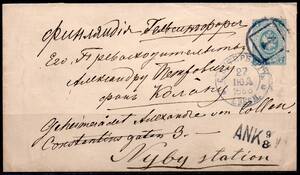 Финляндія Гельсингфорсъ
Его Превосходительству
Александру
фонъ
27
Geheimerådet Alexandre von Collan.
Constantinsgatan 3.
Nyby station
ANK 9/8